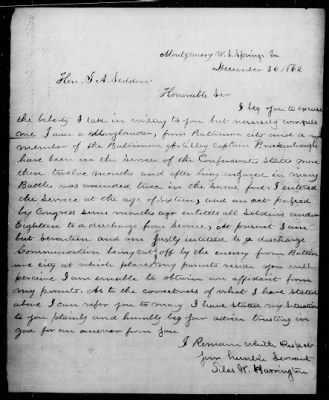 Montgomery W. S. Springs Va
December 26 1862
Hon. J. A. Seddon
Honorable Sir
I beg you to excuse
the liberty I take in writing to you but necessity compels
me I am a Marylander, from Baltimore city and a
member of the Baltimore Artilley Captain Brockenbrough
have been in the Service of the Confederate States more
then twelve months and after being engaged in many
Battles was wounded twice in the same foot. I entered
the Service at the age of sixteen, and an act passed
by Congress some months ago entitels all Soldiers under
Eighteen to a discharge from Service, At present I am
but seventeen and am justly intitled to a discharge
Communication being cut off by the enemy from Baltim
ore city at which place my parents reside you will
perceive I am enable to obtain an affidavit from
my parents. As to the correctness of what I have stated
above I can refer you to many I have stated my situation
to you plainly and humbly beg your advice trusting in
God for an answer from you
I Remain with Respect
your humble Servant
Silas W. Harrington